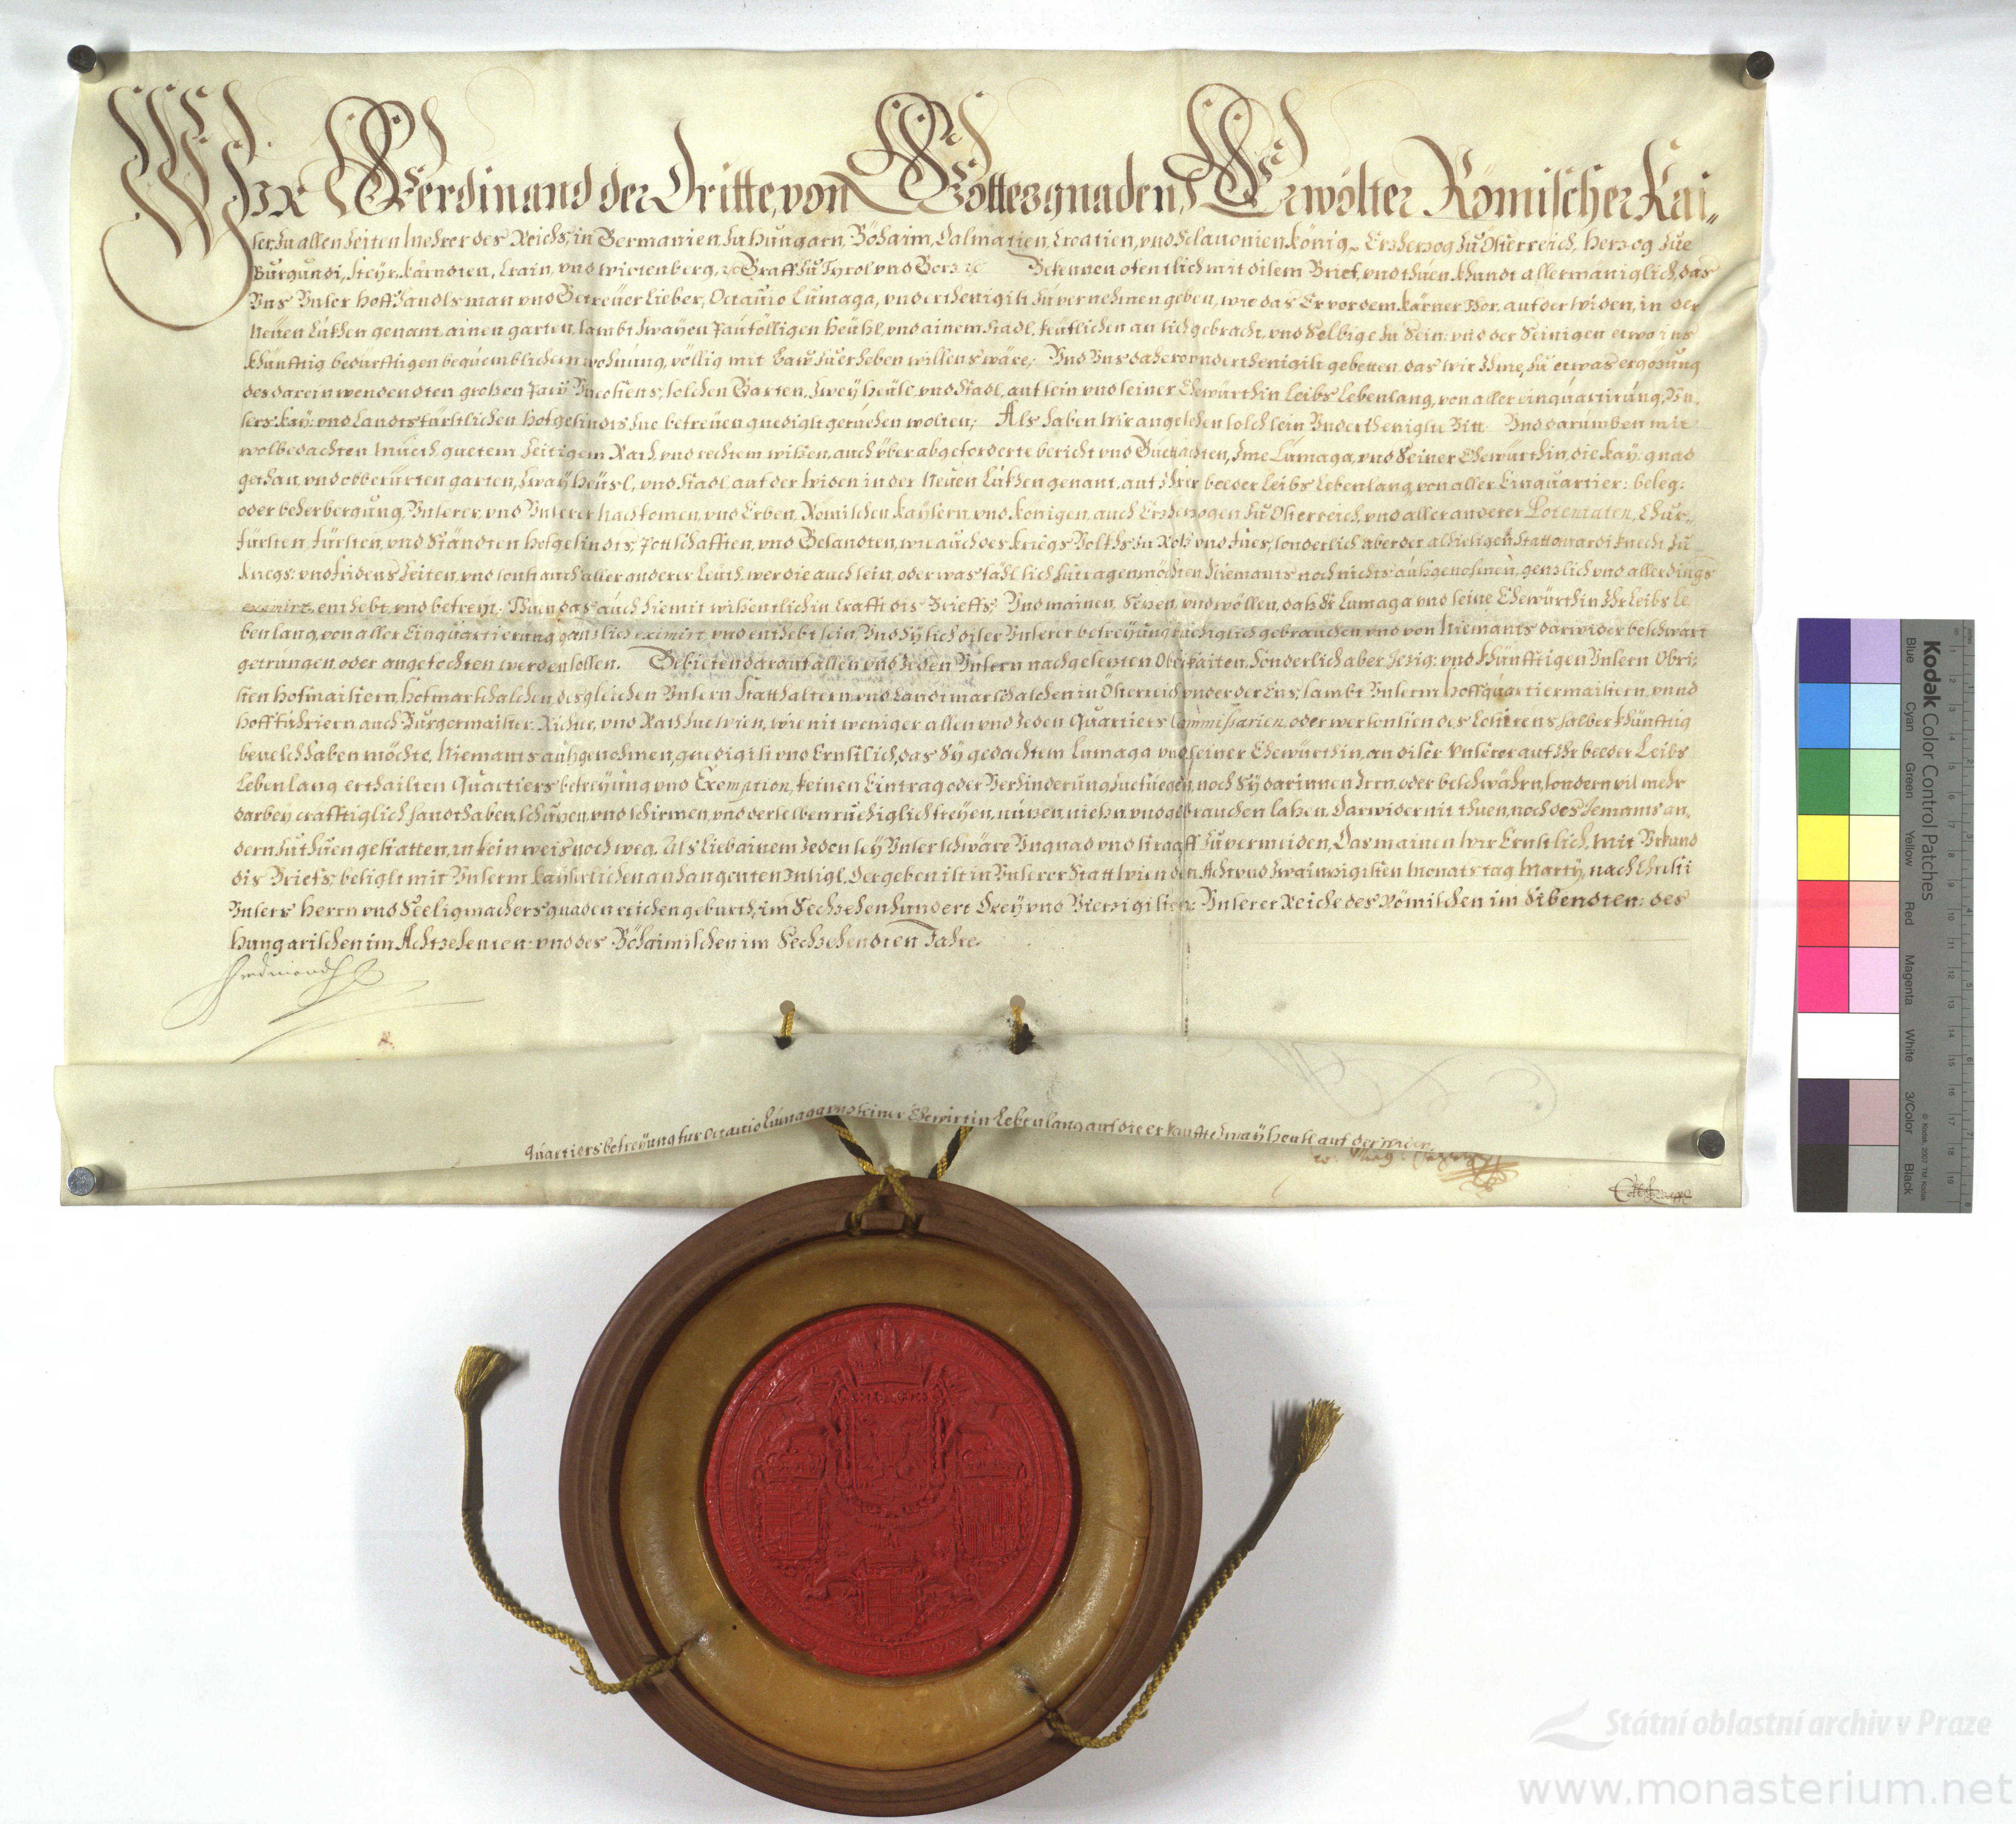 Wir Ferdinand der Dritte, von Gottes gnaden, Erwölter Römischer Kai„
ser, Zu allen Zeiten Mehrer des Reichs, in Germanien, Zu Hungarn, Böhaim, Dalmatien, Croatien, vnd Sclauonien König, Erzherzog Zu Österreich, Herzog Zue
Burgundi, Steyr, Kärndten, Crain, vnd Wirtenberg, ꝛc Graff Zu Tyrol vnd Görz ꝛc Bekennen ofentlich mit disem Brief, vnd thuen khundt allermäniglich, das
Vns Vnser Hoff Handlsman vnd Getreüer Lieber, Octauio Lumaga, vnderthenigist Zuvernehmen geben, wie das Er vor dem Kärner Thor, auf der Widen, in der
Neüen Lukhen genant ainen garten, sambt Zwayen paufölligen heüsl, vnd ainem stadl, keüflichen an sich gebracht, vnd Selbige Zu Sein: vnd der Seinigen etwo ins
khünfftig bedürfftigen bequemblichern wohnung, völlig mit Gaw Zuerheben willens wäre; Vnd Vns dahero vnderthenigist gebetten, das wir Ihme, Zu etwas ergözung
des darein wendendten grossen paw Vncostens, solchen Garten, Zwey heüsl, vnd Stadl, auf sein vnd seiner Ehewürthin Leibs Lebenlang, von aller einquartirung, Vn„
sers Kay: vnd Landtsfürstlichen Hofgesindts Zue befreüen gnedigst geruehen wolten; Als haben Wir angesehen solch sein Vndertheniglte Bitt Vnd darumben mit
wolbedachten Mueth, guetem Zeitigem Rath, vnd rechtem wissen, auch über abgeforderte bericht vnd Guetachten, Ime Lumaga, vnd Seiner Ehewürthin, die Kay: gnad
gethan, vnd obberürten garten, Zway Heüsl, vnd Stadl auf der Widen in der Neuen Lukhen genant, auf Ihrer beeder Leibs Lebenlang, von aller Einquartier: beleg:
oder beherbergung, Vnserer, vnd Vnserer nachkomen, vnd Erben, Römischen Kaysern, vnd Königen, auch Erzherzogen Zu Österreich, vnd aller anderer Potentaten, Chur„
fürsten, fürsten, vnd Ständten Hofgesindts, Pottschafften, vnd Gesandten, wie auch des Kriegs Volkhs Zu Ross vnd fues, sonderlich aber der alhieigen Stattguardi knecht, Zu
Kriegs: vnd fridens Zeiten, vnd sonst auch aller anderer Leüth, wer die auch sein, oder was fähl sich Zuetragen möchten, Niemants noch nichts aussgenohmen, genzlich vnd allerdings
eximirt, enthebt, vnd befreyt; Thuen das auch hiemit wissentlich in Crafft dis Brieffs, Vnd mainen, Sezen, vnd wöllen, dass Er Lumaga vnd seine Ehewürthin Ihr Leibs Le„
benlang, von aller Einquartierung gänzlich eximirt, vnd enthebt sein, Vnd sy sich diser Vnserer befreyung ruehiglich gebrauchen, vnd von Niemants darwider beschwärt
getrungen oder angefochten werden sollen. Gebieten darauf allen vnd Jeden Vnsern nachgesezten Obrikaiten, Sonderlich aber Jezig: vnd khünfftigen Vnsern Obri„
sten Hofmaistern, Hofmarschalchen, desgleichen Vnsern Statthaltern, vnd Landtmarschalchen in Österreich vnder der Ens, sambt Vnserm Hoffquartiermaistern, vnnd
Hoff fuhriern, auch Burgermaister, Richter, vnd Rath Zue Wien, wie nit weniger allen vnd Jeden Quartiers Commissarien, oder wer sonsten des Losirens halber khünfftig
beuelch haben möchte, Niemants aussgenohmen, gnedigist vnd Ernstlich, das Sy gedachtem Lumaga vnd seiner Ehewürthin, an diser Vnserer auf Ihr beeder Leibs
Lebenlang erthailten Quartiers befreyung vnd Exemption, keinen Eintrag oder Verhinderung Zuefüegen, noch Sy darinnen Irren, oder beschwährn, sondern vil mehr
darbey crafftiglich handthaben, schuzen, vnd schirmen, vnd derselben ruehiglich freyen, nuzen, niessen, vnd gebrauchen lassen, Darwider nit thuen, noch des Jemants an„
dern Zuthuen gestatten, in kein weis noch weg, Als Lieb ainem Jeden sey Vnser schwäre Vngnad vnd straff Zuvermeiden, Das mainen Wir Ernstlich, Mit Vrkund
dis Briefs, besiglt mit Vnserm Kayserlichen anhangenten Insigl, Der geben ist in Vnserer Statt Wien den Acht vnd Zwainzigisten Monats tag Marty, nach Christi
Vnsers Herrn vnd Seeligmachers gnadenreichen geburth, im Sechzehenhundert Drey vnd Vierzigisten: Vnserer Reiche des Römischen im Sibendten: des
Hungarischen im Achtzehenten: vnd des Böhaimischen im Sechzehendten Jahre.
Ferdinandt
Quartiers befreyung für Octauio Lumaga vnd seiner Ehewirtin Lebenlang auf die erkauffte Zway heusl auf der Wien
Kodak Color Control Patches
Blue Cyan Green Yellow Red Magenta White 3/Color Black
© Kodak, 2007 TM: Kodak
Státní oblastní archiv v Praze
www.monasterium.net